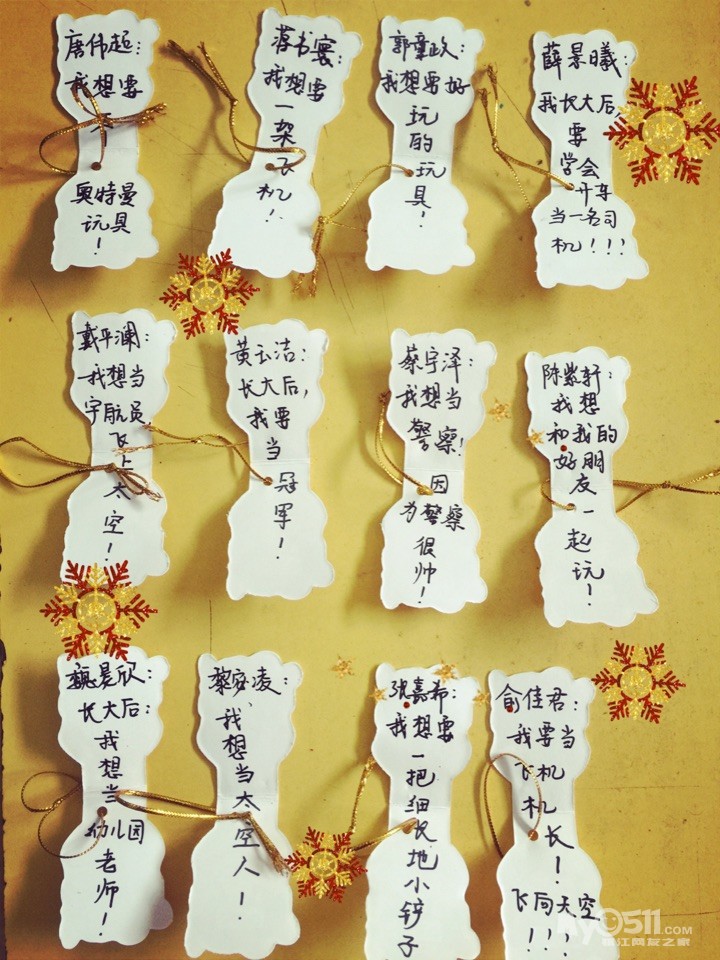 唐伟起：
我想要
个
奥特曼
玩具
！
蒋书宴：
我想要
一
架
飞
机！
郭童政：
我想要好
玩
的
玩
具！
薛景曦：
我长大后，
要
学会
开车
当一名司
机！！！
戴平澜：
我想当
宇航员
飞
上
太
空！
黄玉洁：
长大后，
我要
当
冠
军！
蔡宇泽：
我想当
警察！
因
为警察
很
帅！
陈紫轩：
我想
和我的
好朋
友
一
起
玩！
魏昊欣：
长大后：
我
想
当
幼儿园
老
师！
黎安凌：
我
想
当
太
空
人！
张嘉希：
我想要
一
把
细
长
地
小
铲
子
俞佳君：
我要当
飞机
机
长！
飞向天空
！！！
My0511.COM
镇江网友之家